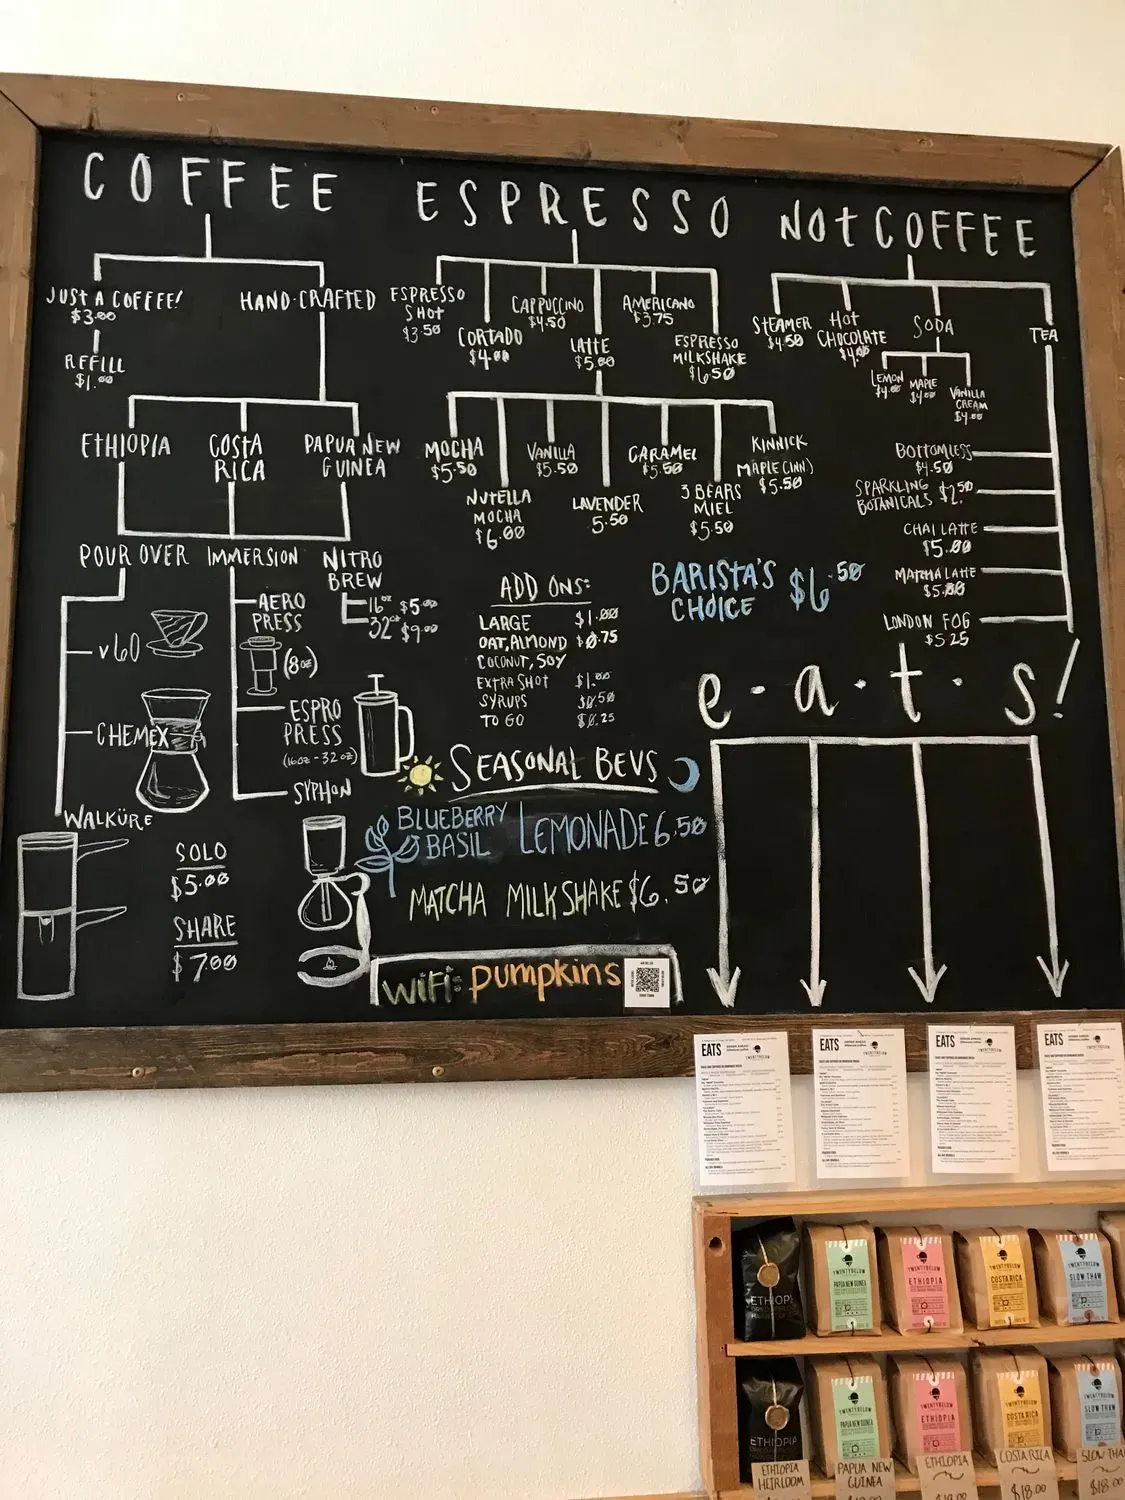 COFFEE
JUST A COFFEE!
$3.00
REFILL
$1.00
HAND-CRAFTED
ETHIOPIA
COSTA
RICA
PAPUA NEW
GUINEA
POUR OVER
V60
CHEMEX
WALKÜRE
IMMERSION
AERO
PRESS
(8oz)
ESPRO
PRESS
(16oz - 32oz)
SYPHON
NITRO
BREW
16oz $5.00
32oz $9.00
SOLO
$5.00
SHARE
$7.00
ESPRESSO
ESPRESSO
SHOT
$3.50
CORTADO
$4.00
CAPPUCCINO
$4.50
LATTE
$5.00
AMERICANO
$3.75
ESPRESSO
MILKSHAKE
$6.50
MOCHA
$5.50
NUTELLA
MOCHA
$6.00
VANILLA
$5.50
LAVENDER
5.50
CARAMEL
$5.50
3 BEARS
MIEL
$5.50
KINNICK
MAPLE CINN)
$5.50
ADD ONS:
LARGE $1.00
OAT, ALMOND $0.75
COCONUT, SOY
EXTRA SHOT $1.00
SYRUPS $0.50
TO GO $0.25
BARISTA'S
CHOICE $6.50
SEASONAL BEVS
BLUEBERRY
BASIL LEMONADE 6.50
MATCHA MILKSHAKE $6.50
WiFi: pumpkins
NOt COFFEE
STEAMER
$4.50
HOT
CHOCOLATE
SODA
LEMON
$4.00
MAPLE
$4.00
VANILLA
CREAM
$4.00
TEA
BOTTOMLESS
$4.50
SPARKLING
BOTANICALS $2.50
CHAI LATTE
$5.00
MATCHA LATTE
$5.00
LONDON FOG
$5.25
e·a·t·s!
EATS
EATS
EATS
EATS
ETHIOPI
TWENTYBELOW
PAPUA NEW GUINEA
TWENTYBELOW
ETHIOPIA
TWENTYBELOW
COSTA RICA
TWENTYBELOW
SLOW THAW
ETHIOPIA
TWENTYBELOW
PAPUA NEW GUINEA
TWENTYBELOW
ETHIOPIA
TWENTYBELOW
COSTA RICA
TWENTYBELOW
SLOW THAW
ETHIOPIA
HEIRLOOM
PAPUA NEW
GUINEA
ETHIOPIA
COSTA RICA
$18.00
SLOW THA
$18.00